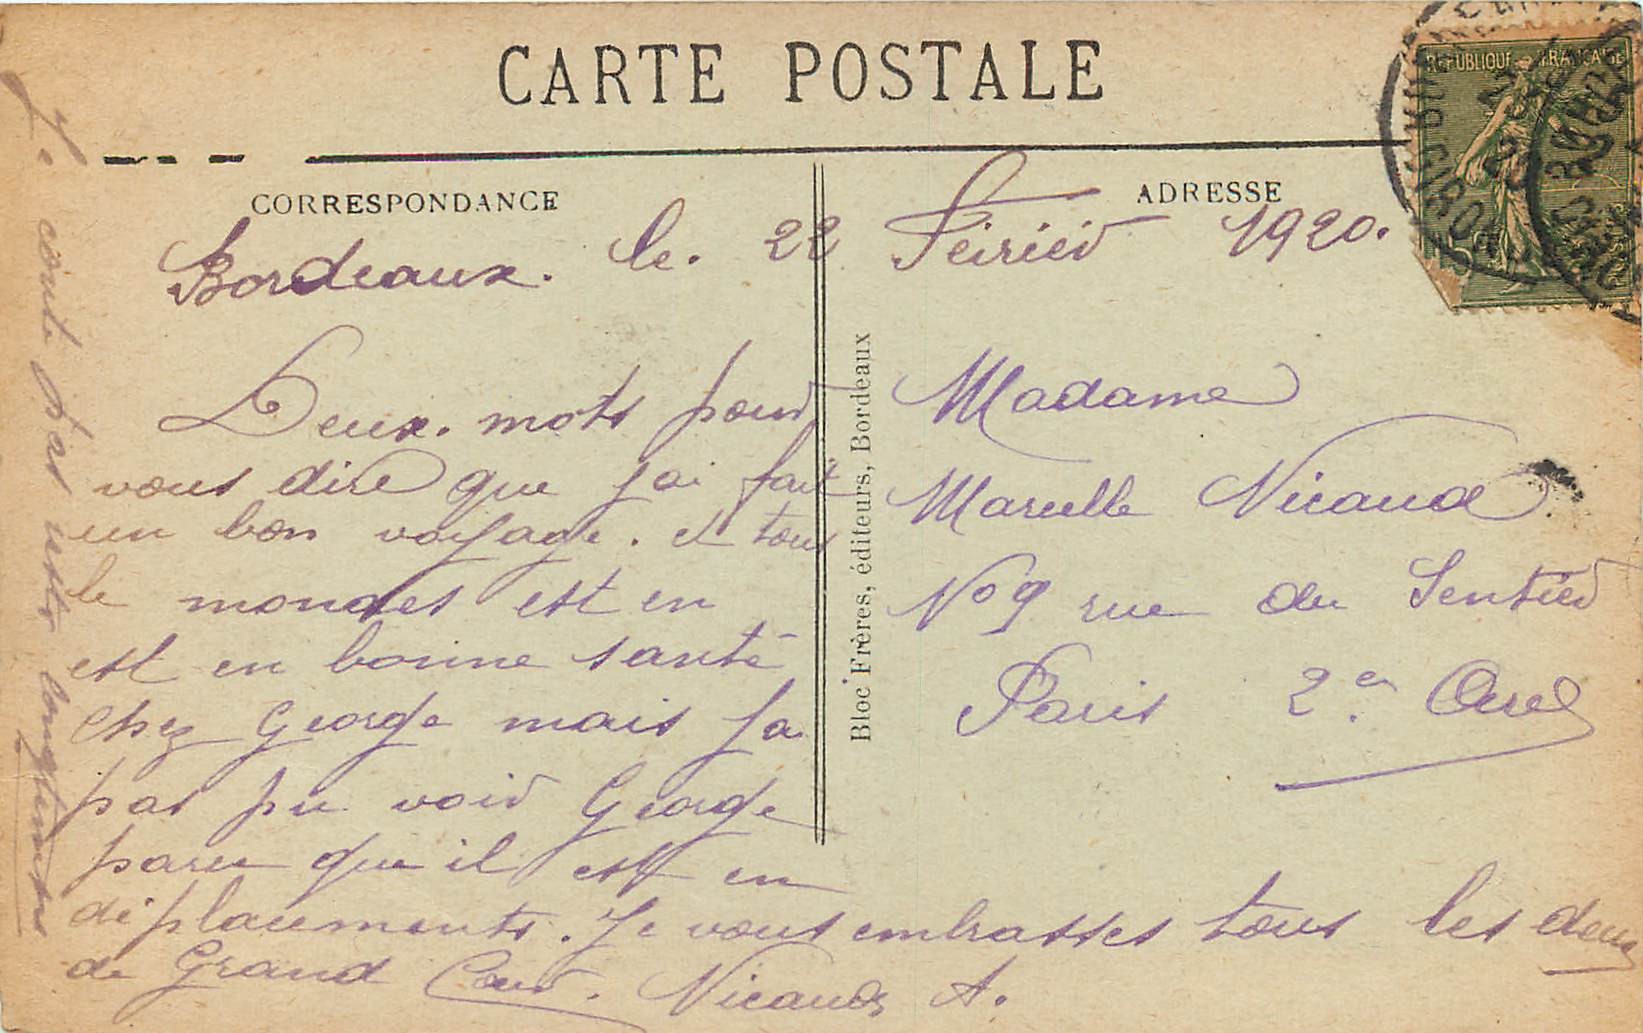 CARTE POSTALE
REPUBLIQUE FRANÇAISE
CORRESPONDANCE
ADRESSE
Bordeaux. le. 22 Feiriér 1920.
Deux. mots pour
vous dire que j'ai fait
un bon voyage. et tous
le mondes est en
est en bonne santé
chez George mais ja
pas pu voir George
parce que il est en
déplacements. Je vous embrasses tous les deux
de Grand Cœur. Nicaud A.
Je conte pas resté longtemps
Bloc Frères, éditeurs, Bordeaux
Madame
Marcelle Nicaud
No 9 rue du Sentier
Paris 2e